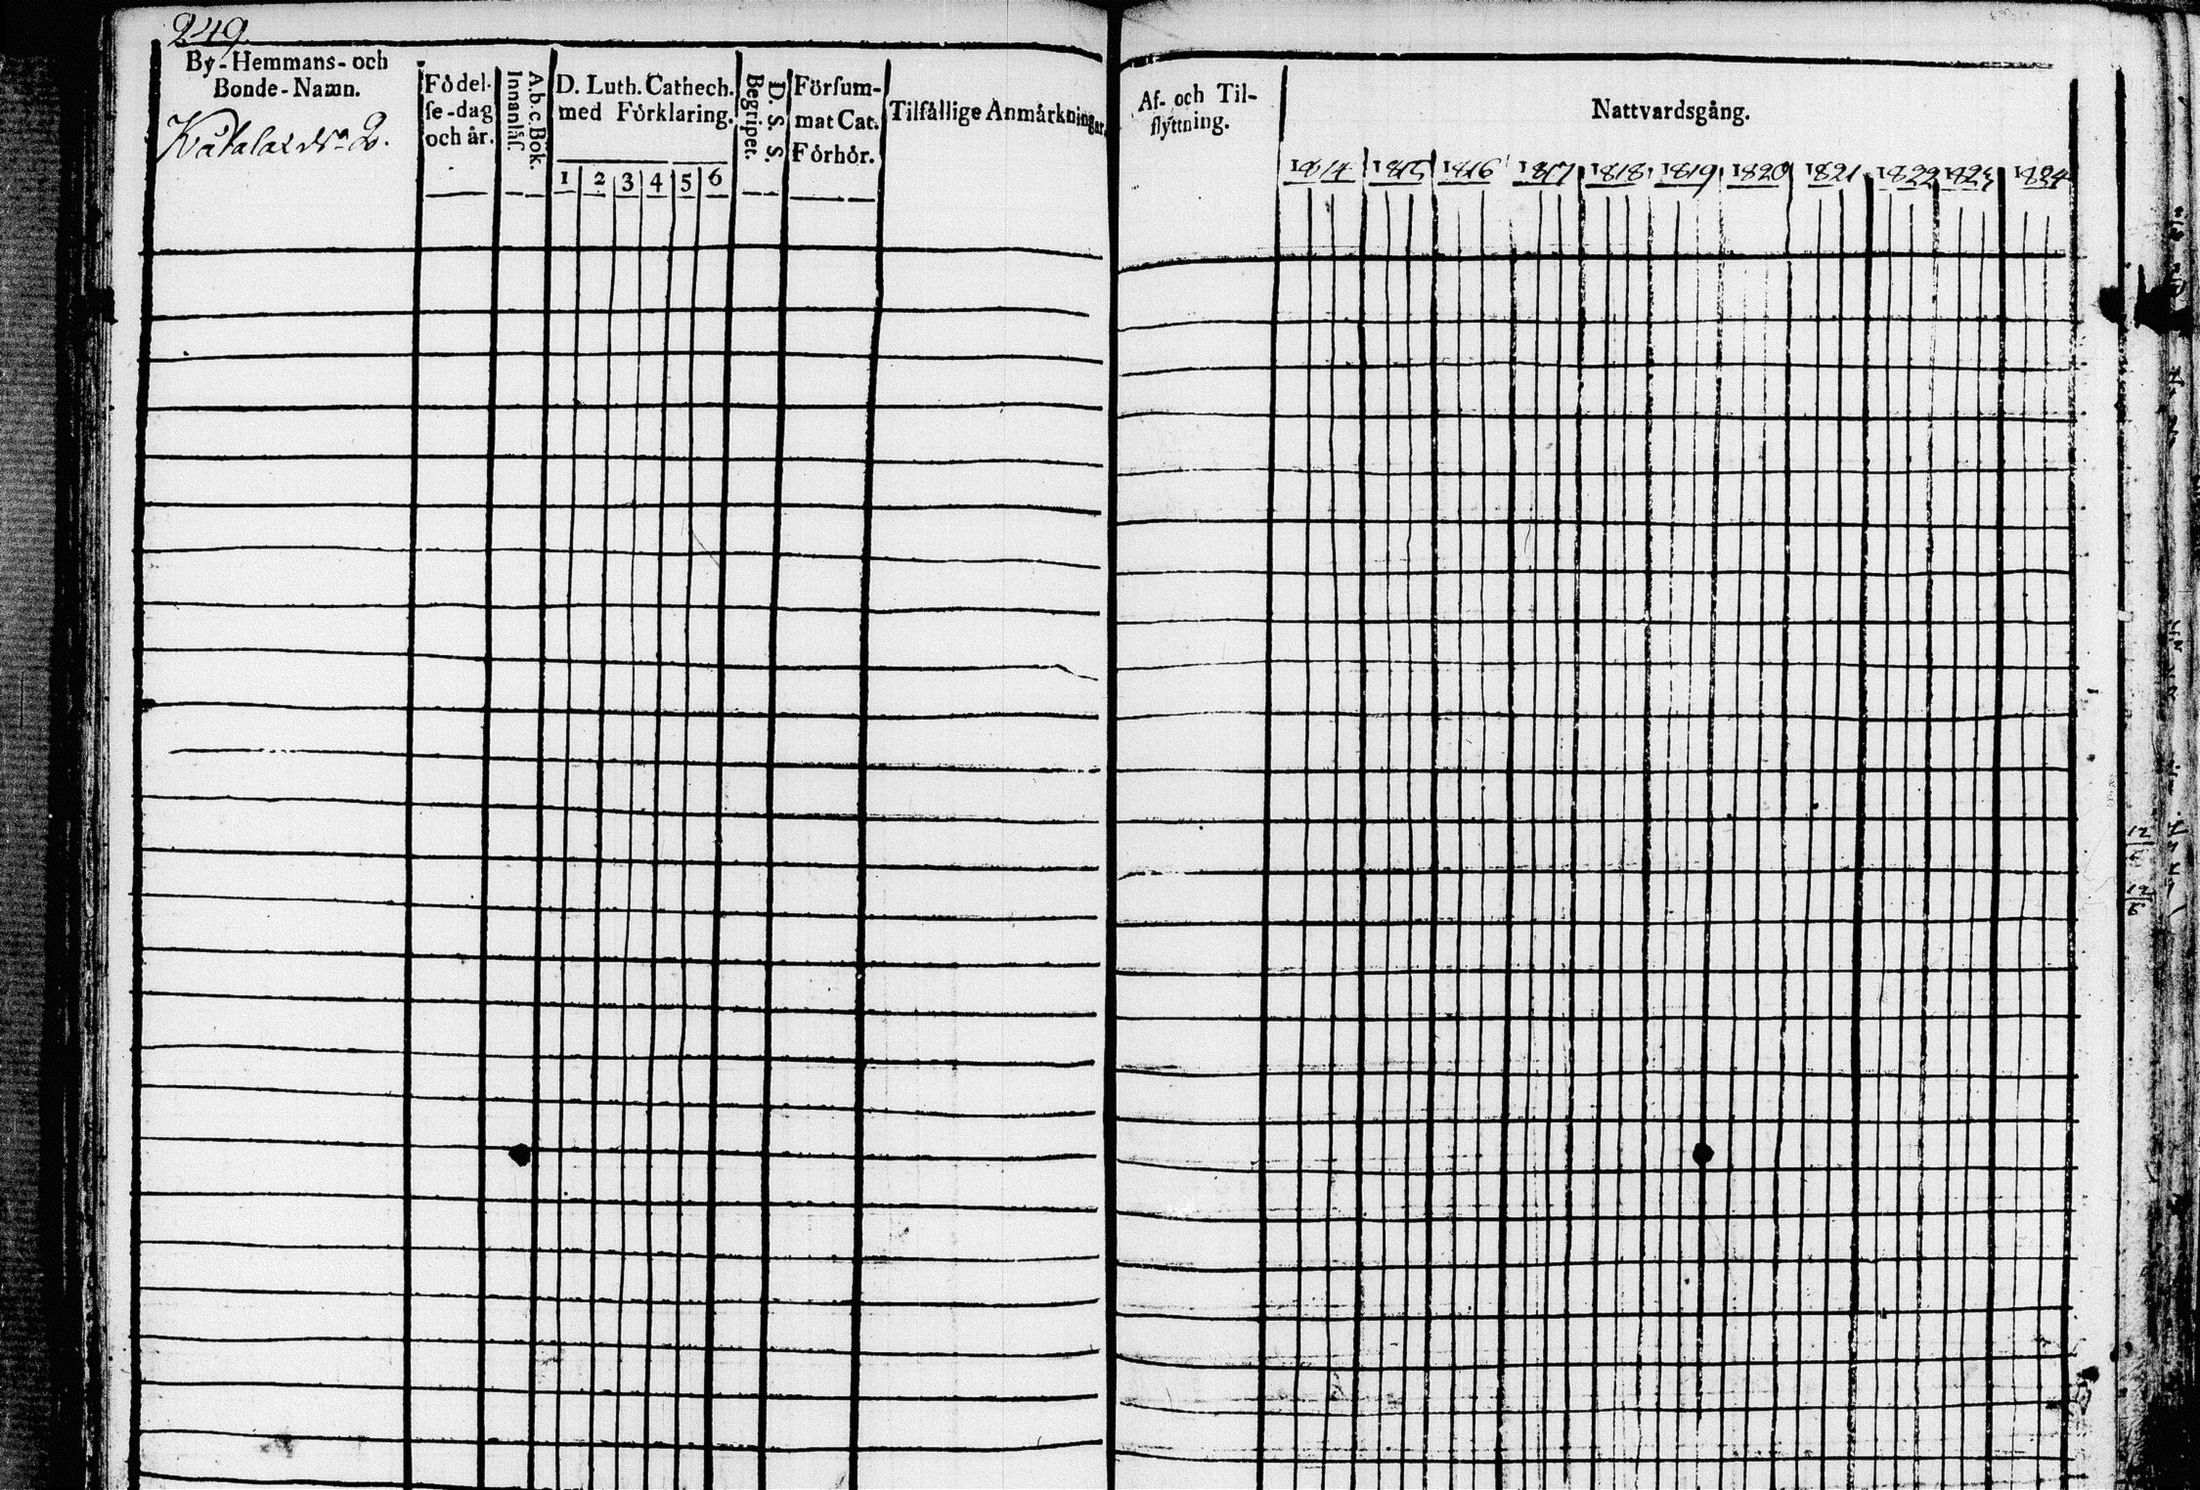 249.
By-Hemmans- och
Bonde-Namn.
No 2.
Födel-
se-dag
och år.
A.b.c.Bok.
Innanläs.
D. Luth. Cathech.
med Förklaring.
1 2 3 4 5 6
D. S. S.
Begripet.
Försum-
mat Cat.
Förhör.
Tilfällige Anmärkningar.
Af- och Til-
flyttning.
Nattvardsgång.
1814 1815 1816 1817 1818 1819 1820 1821 1822 1823 1824